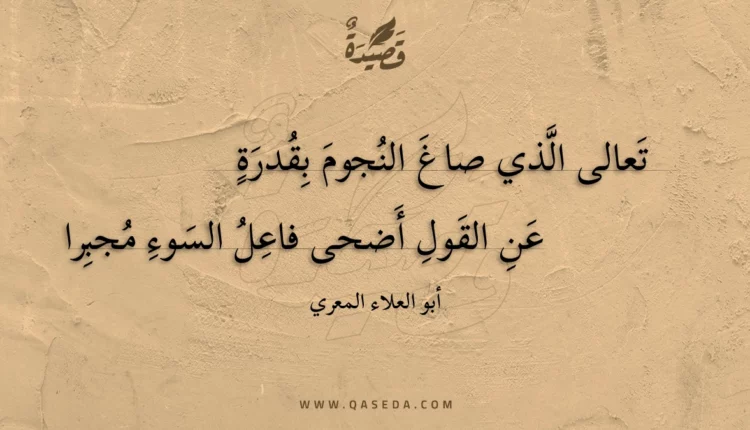 قَصِيدَةٌ
تَعالى الَّذي صاغَ النُجومَ بِقُدرَةٍ
عَنِ القَولِ أَضحى فاعِلُ السَوءِ مُجبِرا
أبو العلاء المعري
WWW.QASEDA.COM